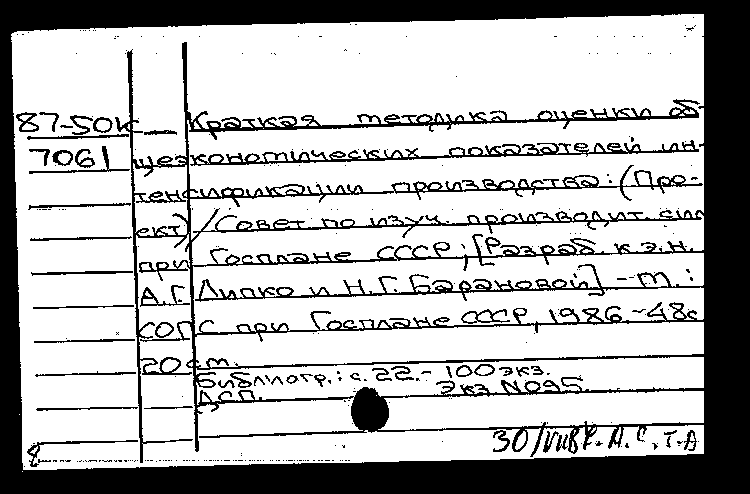 87-50к Краткая методика оценки об-
7061 щеэкономических показателей ин-
тенсификации производства: (Про-
ект) / Совет по изуч. производит. сил
при Госплане СССР; [Разраб. к.э.н.
А.Г. Липко и Н.Г. Барановой] - М.:
СОПС при Госплане СССР, 1986.-48с
20см.
Библиогр.: с. 22.- 100 экз.
ДСП. Экз N095.
8 30/